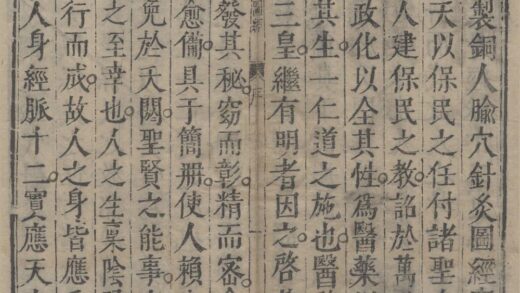 製銅人腧穴針灸圖經
天以保民之任付諸聖
人建保民之教詔於萬
政化以全其性。爲醫藥
其生一仁道之施也。醫
三皇。繼有明者因之。啓
序
發其秘。窈而彰。精而密。
愈備。具于簡册。使人賴
免於夭閼。聖賢之能事。
之至幸也。人之生稟陰
行而成。故人之身皆應
人身經脈十二。實應天